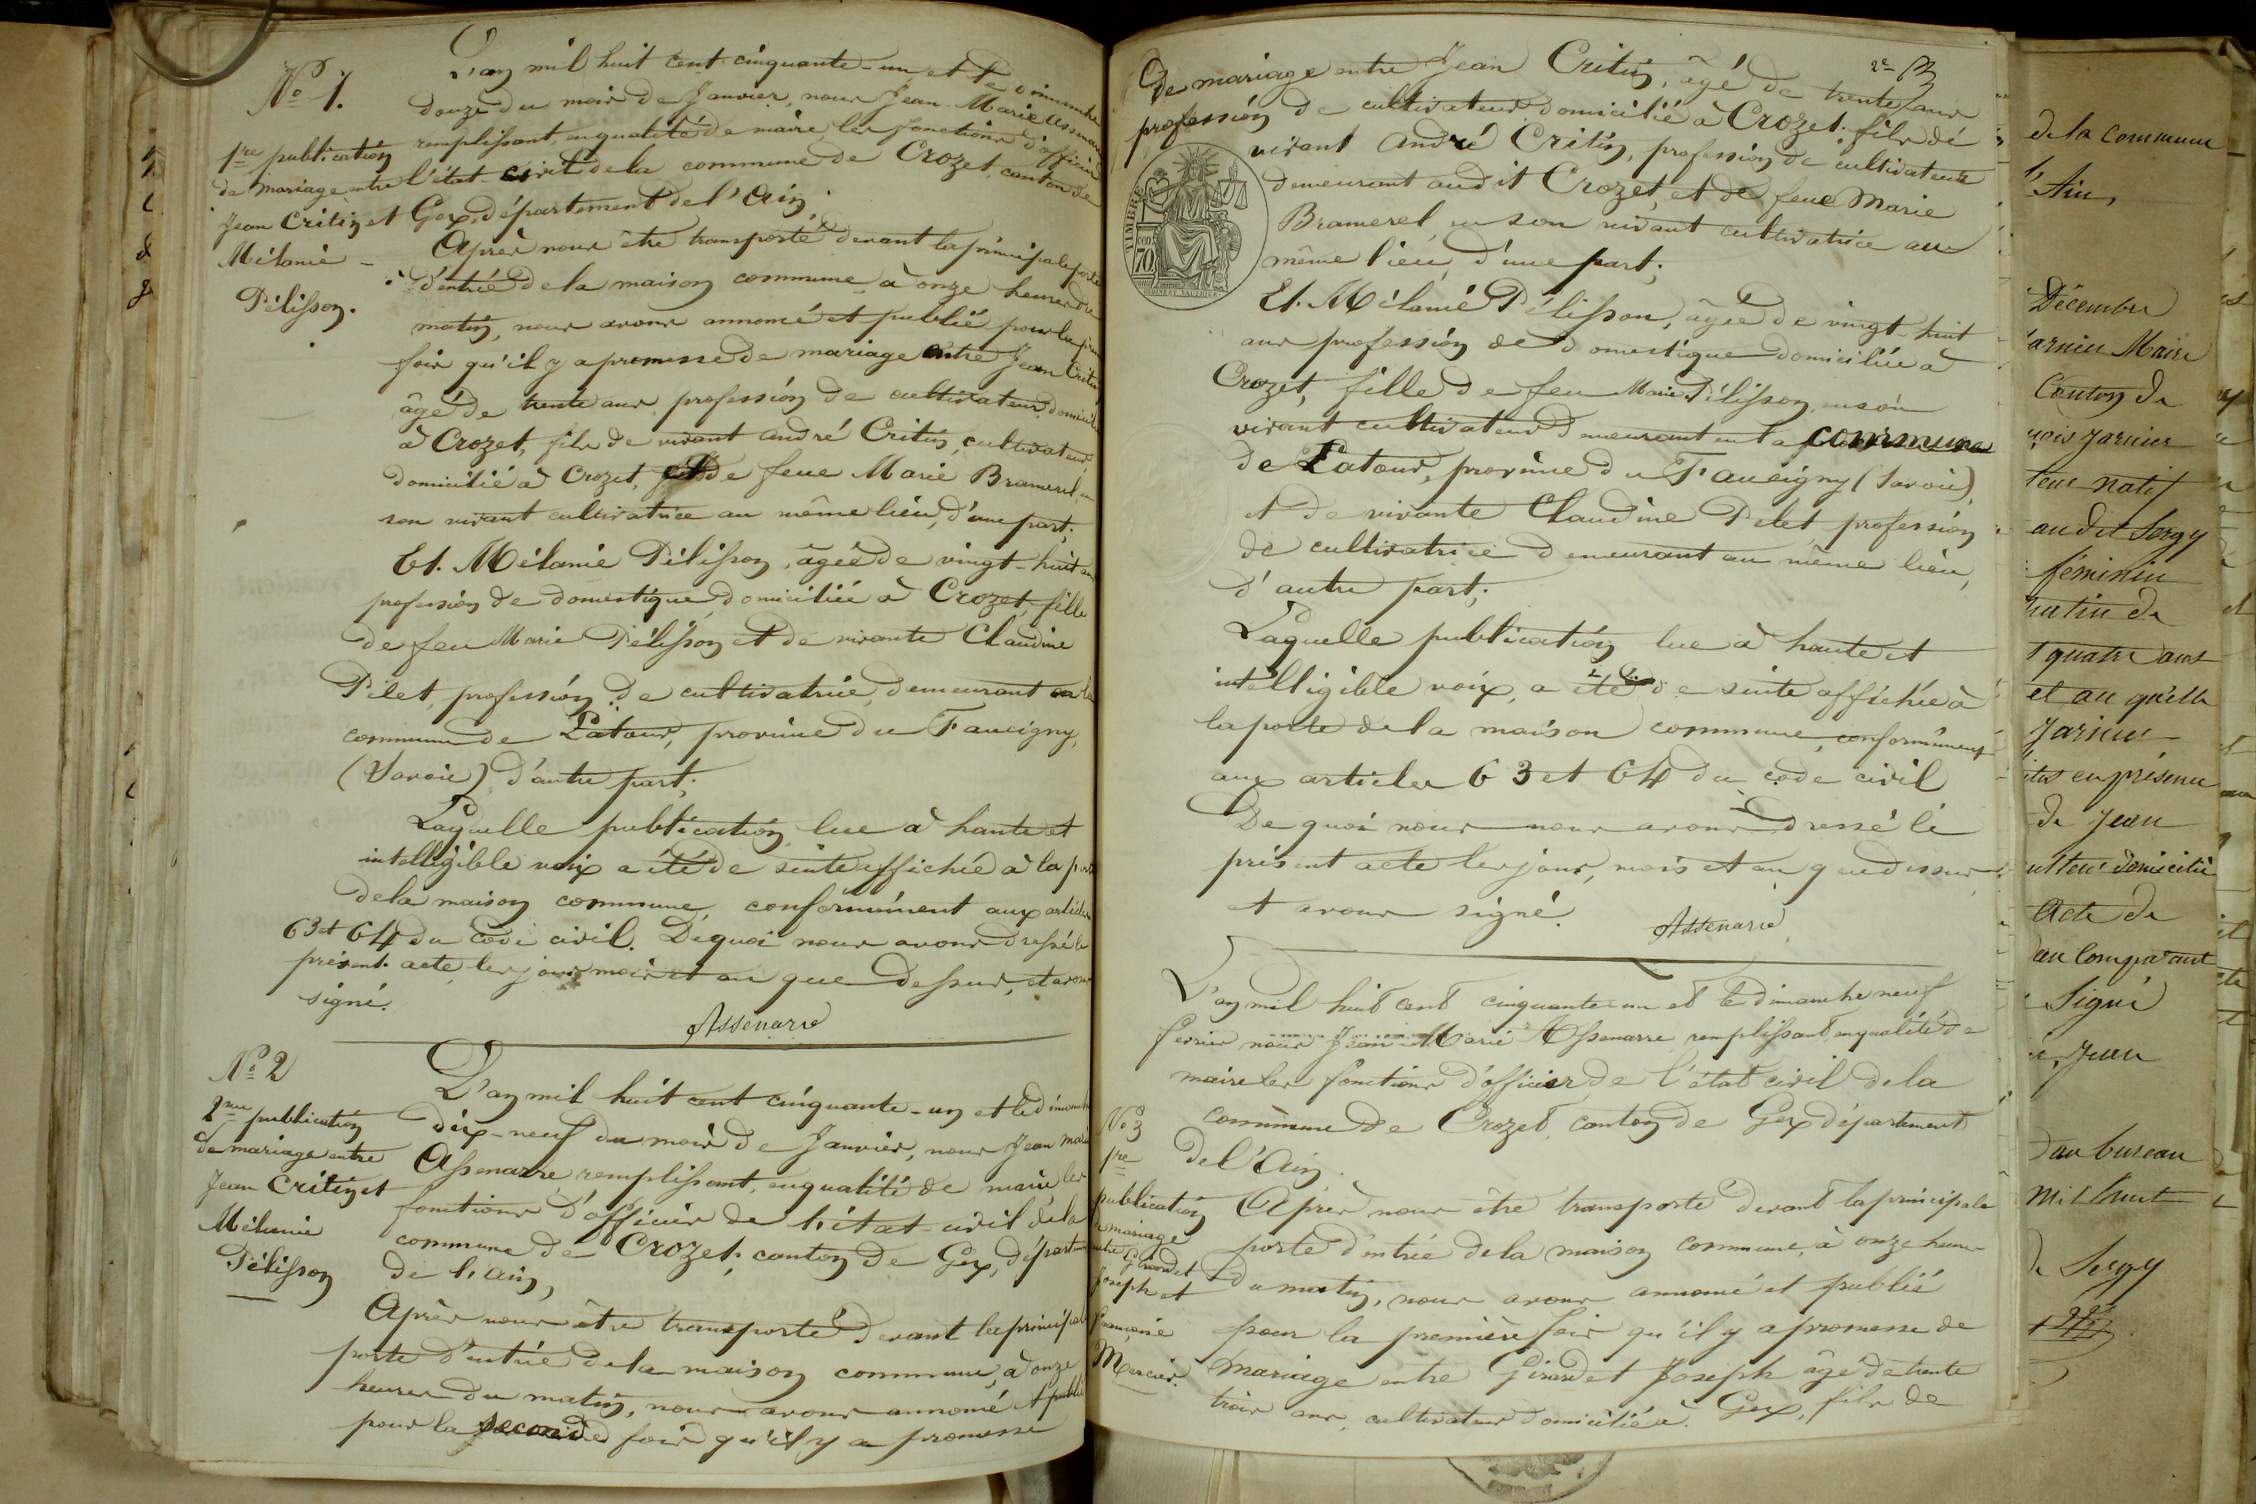 N° 1.
1re publication
de mariage entre
Jean Critin et
Mélanie
Pélisson.
L'an mil huit cent cinquante-un et le dimanche
douze du mois de Janvier, nous Jean-Marie Assenarre
remplissant, en qualité de maire, les fonctions d'officier
de l'état-civil de la commune de Crozet, canton de
Gex, département de l'Ain;
Après nous être transporté devant la principale porte
d'entrée de la maison commune, à onze heures du
matin, nous avons annoncé et publié pour la première
fois qu'il y a promesse de mariage entre Jean Critin
âgé de trente ans, profession de cultivateur domicilié
à Crozet, fils de vivant André Critin, cultivateur,
domicilié à Crozet, et de feue Marie Bramerel, en
son vivant cultivatrice au même lieu, d'une part;
Et. Mélanie Pélisson, âgée de vingt-huit ans
profession de domestique domiciliée à Crozet, fille
de feu Marie Pélisson et de vivante Claudine
Pilet, profession de cultivatrice, demeurant en la
commune de Latour, province du Faucigny,
(Savoie) d'autre part;
Laquelle publication, lue à haute et
intelligible voix a été de suite affichée à la porte
de la maison commune, conformément aux articles
63 et 64 du Code civil. De quoi nous avons dressé le
présent acte les jour mois et an que dessus, et avons
signé.
Assenarre
N° 2
2me publication
de mariage entre
Jean Critin et
Mélanie
Pélisson
L'an mil huit cent cinquante-un et le dimanche
dix-neuf du mois de Janvier, nous Jean Marie
Assenarre, remplissant, en qualité de maire, les
fonctions d'officier de l'état-civil de la
commune de Crozet, canton de Gex, département
de l'Ain,
Après nous être transporté devant la principale
porte d'entrée de la maison commune, à onze
heures du matin, nous avons annoncé et publié
pour la seconde fois qu'il y a promesse
2e
De mariage entre Jean Critin, âgé de trente ans
profession de cultivateur domicilié à Crozet, fils de
vivant André Critin, profession de cultivateur
demeurant audit Crozet, et de feue Marie
Bramerel, en son vivant cultivatrice au
même lieu, d'une part;
TIMBRE
70
Et. Mélanie Pélisson, âgée de vingt-huit
ans profession de domestique domiciliée à
Crozet, fille de feu Marie Pélisson, en son
vivant cultivateur demeurant en la commune
de Latour, province du Faucigny (Savoie),
et de vivante Claudine Pilet profession
de cultivatrice demeurant au même lieu,
d'autre part;
Laquelle publication lue à haute et
intelligible voix, a été de suite affichée à
la porte de la maison commune, conformément
aux articles 63 et 64 du code civil
De quoi nous nous avons dressé le
présent acte les jour, mois et an que dessus,
et avons signé.
Assenarre
L'an mil huit cent cinquante un et le dimanche neuf
fevrier nous Jean Marie Assenarre remplissant en qualité de
maire les fonctions d'officier de l'état civil de la
commune de Crozet, canton de Gex département
de l'Ain.
N° 3
1re
publication
de mariage
entre Girardet
Joseph et
Mercier.
Après nous être transporté devant la principale
porte d'entrée de la maison commune, à onze heures
du matin, nous avons annoncé et publié
pour la première fois qu'il y a promesse de
mariage entre Girardet Joseph âgé de trente
trois ans, cultivateur domicilié à Gex, fils de
de la commune
l'Ain,
Décembre
Maire
Canton de
natif
audit Sergy
féminin
quatre ans
et an qu'elle
en présence
de Jean
domicilié
Acte de
au Comparant
Signé
Jean
au bureau
Mil huit
de Sergy